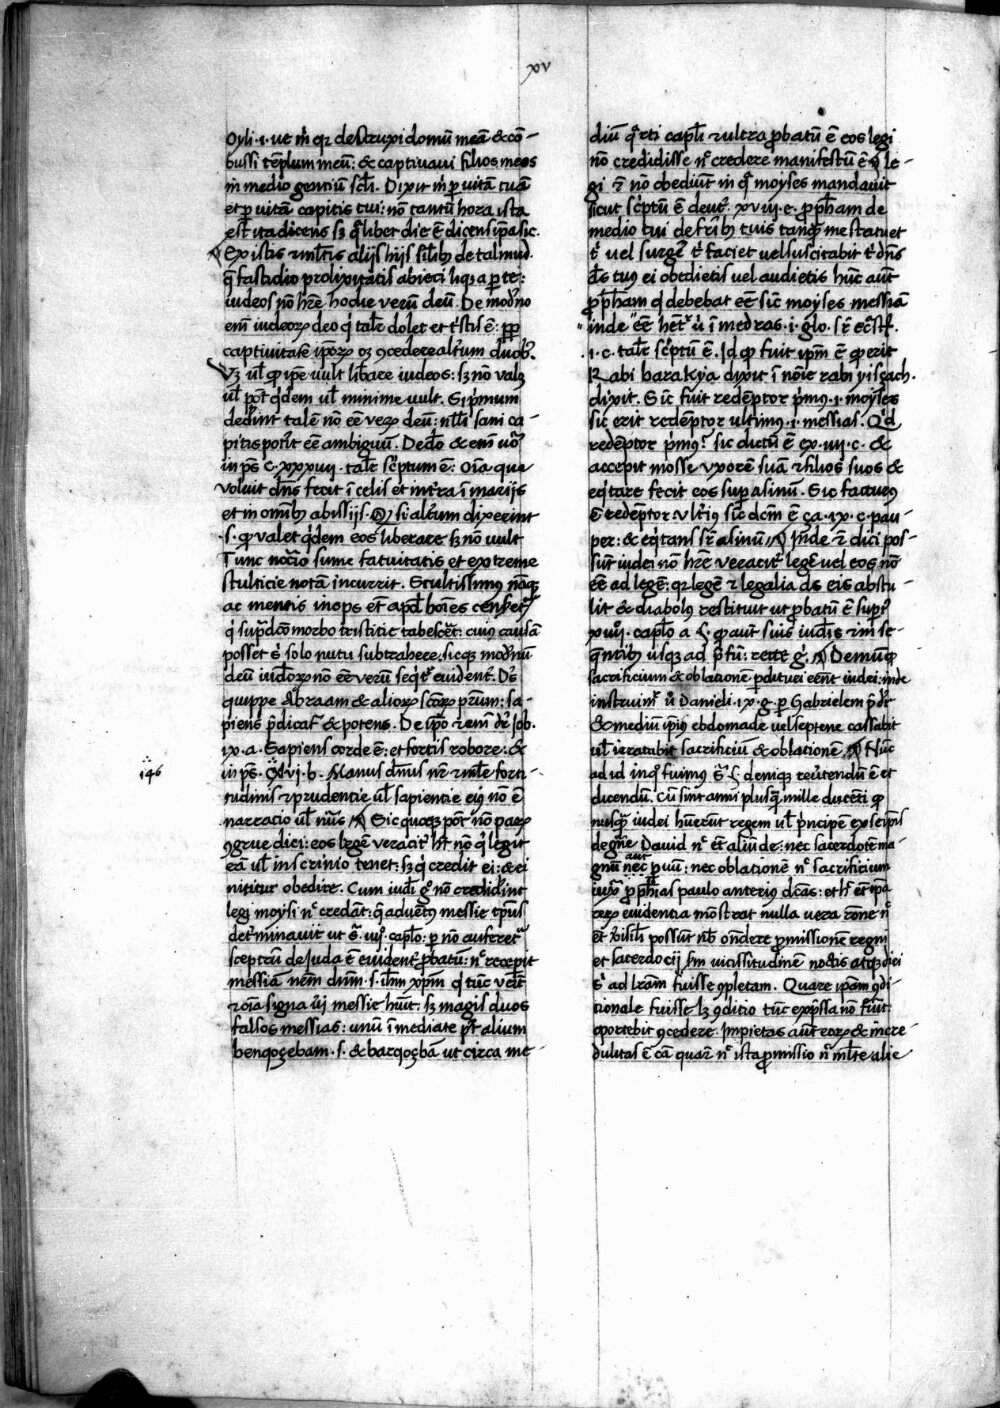 xv
Oyli .i. ve mͥ qr destruxi domū meā & cō-
bussi tēplum meū: & captivavi filios meos
in medio gentiū scl̄i. Dixit mͥ ꝑ vitā tuā
et ꝑ vitā capitis tui: nō tantū hora ista
est ita dicens sꝫ q̄libet die ē dicens ip̄a sic.
Ex istis & ml̄tis alijs hijs sil̄ibꝰ de talmud.
q̄ fastidio prolixitatis abieci liqꝫ aꝑte:
iudeos nō hr̄e hodie verū deū. De mod̄no
eni iudeoꝝ deo qͥ tal̄r dolet et tͥstis ē: ꝓp
captivitatē ip̄oꝝ oꝫ ꝯcedere alt̄um duobꝰ.
Vꝫ ul̄ ꝙ ip̄e vult lib̄are iudeos: sꝫ nō valꝫ
ul̄ pōt qͥdem ul̄ minime vult. Si pͥmum
dederint talē nō eē verꝝ deū: nl̄li sani ca-
pitis potit eē ambiguū. De deo & eni uͦo
in ps̄ c.xxxiiij. tal̄r scͥptum ē: Oīa que
voluit dn̄s fecit ī celis et in tr̄a ī marijs
et in omībꝰ abissijs. Si alt̄um dixerint
.s. ꝙ valet qͥdem eos liberare sꝫ nō vult
Tunc nōcio sume fatuitatis et extreme
stulticie notā incurrit. Stultissimus nāqꝫ
ac mentis inops et̄ apd̄ hoīes censet᷑
qͥ sup̄dco morbo tristitie tabesc̄et: cuiꝰ causā
posset sͥ solo nutu subtrahere. sicqꝫ mod̄nū
deū iud̄oꝝ nō eē verū seqͥt᷑ evident᷑. Dꝰ
quippe Abraam & alioꝝ sc̄oꝝ pr̄um: sa-
piens p̄dicat᷑ & potens. De ip̄o & eni dr̄ Job.
ix.a. Sapiens corde ē: et fortis robore: &
in ps̄. cxlvi.b. Manus dn̄us nr̄ & ml̄te forti-
146
tudinis & prudentie ul̄ sapientie eiꝰ nō ē
narratio ul̄ nūs Sic quoqꝫ pōt nō paꝝ
ꝯgrue dici: eos legē veracit᷑ hr̄t nō qͥ legit
eā ul̄ in scrinio tenet: sꝫ qͥ credit ei: & ei
nititur obedire. Cum iud̄i gͦ nō credid̄int
legi moysi nͨ credāt: q̄ adventꝰ messie tp̄us
det᷑minavit ut sͣ. iijͦ. cap̄lo: ꝑ nō auferet᷑
sceptrū de iuda ē evident᷑ ꝓbatū: nͨ recepit
messiā nēm dn̄m .s. ih̄m xp̄m qͥ tūc venit
& oīa signa ūi messie huīt: sꝫ magis duos
falsos messias: unū īmediate pꝰt alium
benqoꝫebam .s. & barqoꝫbā ut circa me-
diū qͣrti cap̄li & ultra ꝓbatū ē eos legi
nō credidisse nͨ credere manifestū ē qͥ le-
gi & nō obediūt in qͣ moyses mandavit
sicut scͥptū ē deut᷑. xviij.e. ꝓph̄am de
medio tui de fr̄ibꝰ tuis tanqͣꝫ me statuet
tͥ vel surge᷑ tͥ faciet vel suscitabit tͥ dn̄s
ds̄ tuꝰ ei obedietis vel audietis hūc aūt
ꝓph̄am qͥ debebat eē sicͧ moyses messiā
inde eē het᷑ uͥ ī medras .i. glo. sr̄ eccl̄f.
.i.c. tal̄r scͥptū ē. Id ꝙ fuit ipm̄ ē ꝙ erit
Rabi barakya dixit ī noīe rabi yisçach.
dixit. Sicͧ fuit redēptor pͥmꝰ .i. moyses
sic erit redēptor ultimꝰ .i. messias. Qͥd
redēptor pͥmꝰ? sic dictū ē ex. iiij.c. &
accepit mosse vxorē suā & filios suos &
eqͥtare fecit eos suꝑ asinū. Sic facturꝰ
ē redēptor vltiꝰ sicͧ dc̄m ē ça.ix.c. pau-
per: & eqͥtans sr̄ asinū Inde & dici pos-
sūt iudei nō hr̄e veracit᷑ legē vel eos nō
eē ad legē: qr legē & legalia ds̄ eis abstu-
lit & diabolꝰ restituit ut ꝓbatū ē supͥ
xiiijͦ. cap̄lo a §. ꝙ aūt suis iud̄is & in se-
qn̄tibꝰ usqꝫ ad fi nū: recte gͦ. Demūqꝫ
sacrificium & oblationē ꝑdituri eēnt iudei: inde
instruimͬ uͥ Danieli. ix.g. ꝑ Gabrielem p̄dͨr
& mediū ip̄iꝰ ebdomade vel septene cassabit
ul̄ irratabit sacrificiū & oblationē Hūc
ad id inqͦ fuimꝰ sͣ §. deniqꝫ rev̄tendū ē et
dicendū. Cū sint anni plusqͣꝫ mille ducēti ꝙ
nusqͣꝫ iudei huerūt regem ul̄ pͥncipem ex seīpis
de gn̄e David nͨ et̄ aliūde: nec sacerdotē ma-
gnū nec aut puū: nec oblationē nͨ sacrificium
iuxͣ ꝓph̄ias paulo anterius dcās: et hͨ ēt ip̄a
reꝝ evidentia mōstrat nulla vera rōne nͨ
et v̄isil̄i possūt nob̄ on̄dere ꝓmissionē regni
et sacerdocij sm̄ vicissitudinē noctis atqꝫ diei
sͥ ad lr̄am fuisse ꝯpletam. Quare ip̄am ꝯdi-
tionale fuisse lꝫ ꝯditio tūc exp̄ssa nō fuit
oportebit ꝯcedere. Impietas aūt eoꝝ & incre-
dulitas ē cā quaꝛ nͨ ista ꝓmissio nͨ ml̄te alie